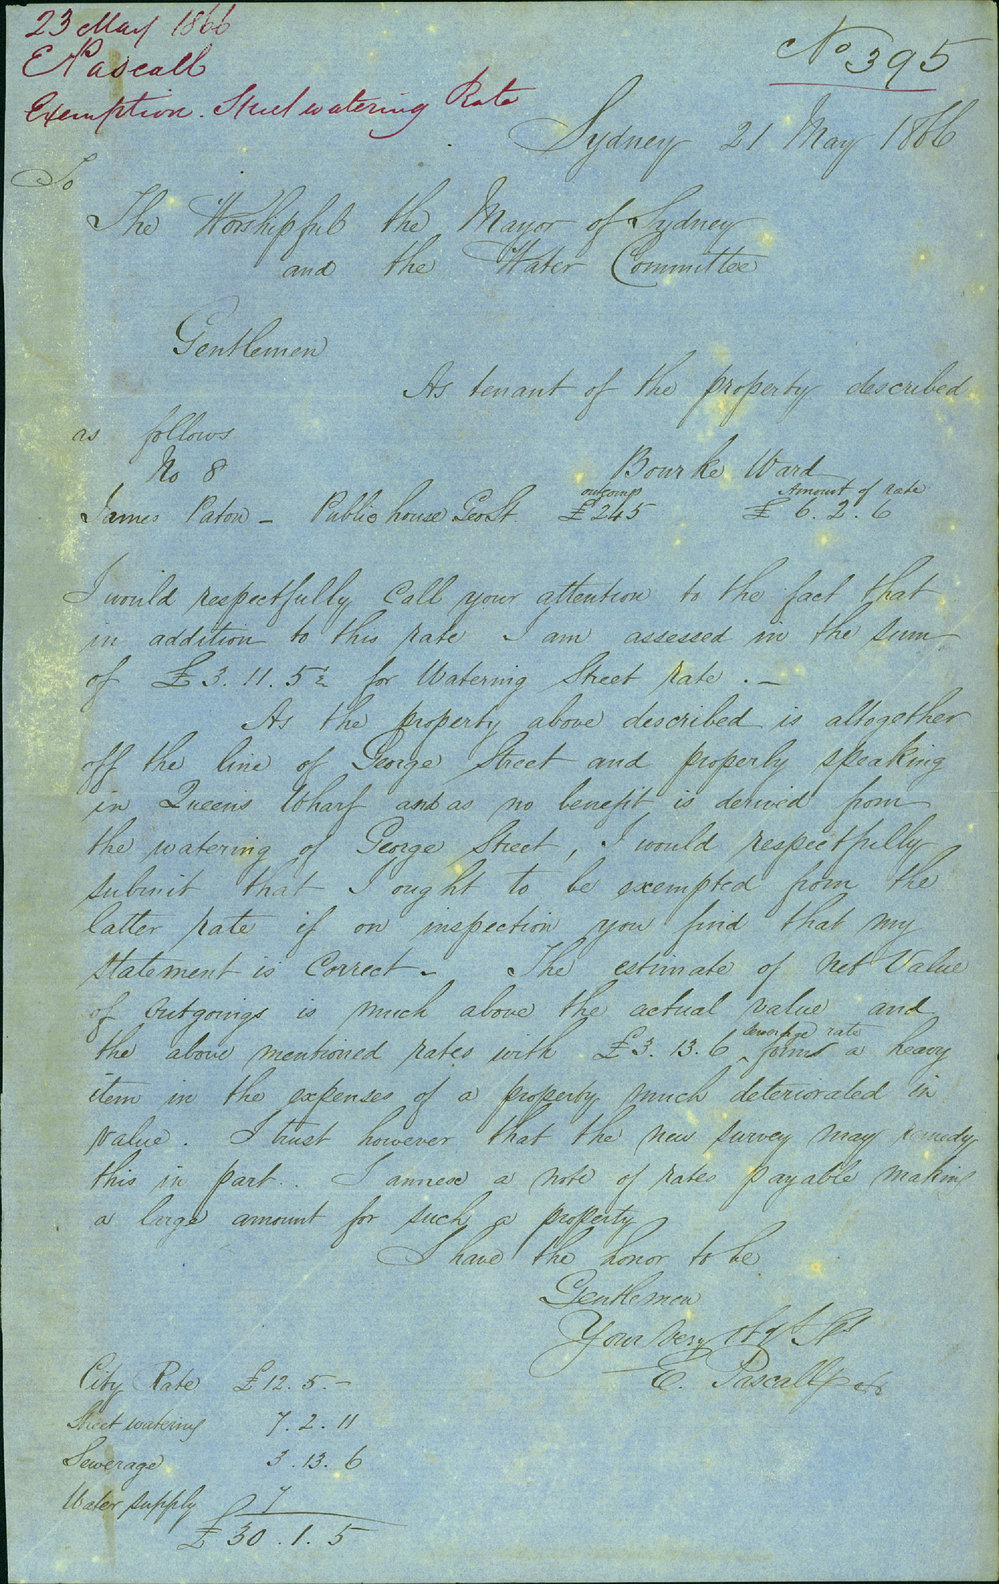 23 May 1866
E Pascall
Exemption. Street watering Rate
No 395
Sydney 21 May 1866
To
The Worshipful the Mayor of Sydney
and the Water Committee
Gentlemen
As tenant of the property described
as follows
No 8 Bourke Ward
outcomp Amount of rate
James Paton - Public house Geo St. £245 £ 6. 2. 6
I would respectfully call your attention to the fact that
in addition to this rate I am assessed in the sum
of £3. 11. 5½ for Watering Street rate. -
As the property above described is altogether
off the line of George Street and properly speaking
in Queens Wharf and as no benefit is derived from
the watering of George Street, I would respectfully
submit that I ought to be exempted from the
latter rate if on inspection you find that my
statement is correct - The estimate of net Value
of outgoings is much above the actual value and
sewerage rate
the above mentioned rates with £3. 13. 6 forms a heavy
item in the expenses of a property much deteriorated in
value. I trust however that the new survey may remedy
this in part.. I annex a note of rates payable making
a large amount for such a property
I have the honor to be
Gentlemen
Your very obt St
E. Pascall
City Rate £12. 5. -
Street watering 7. 2. 11
Sewerage 3. 13. 6
Water supply 7
£ 30. 1. 5